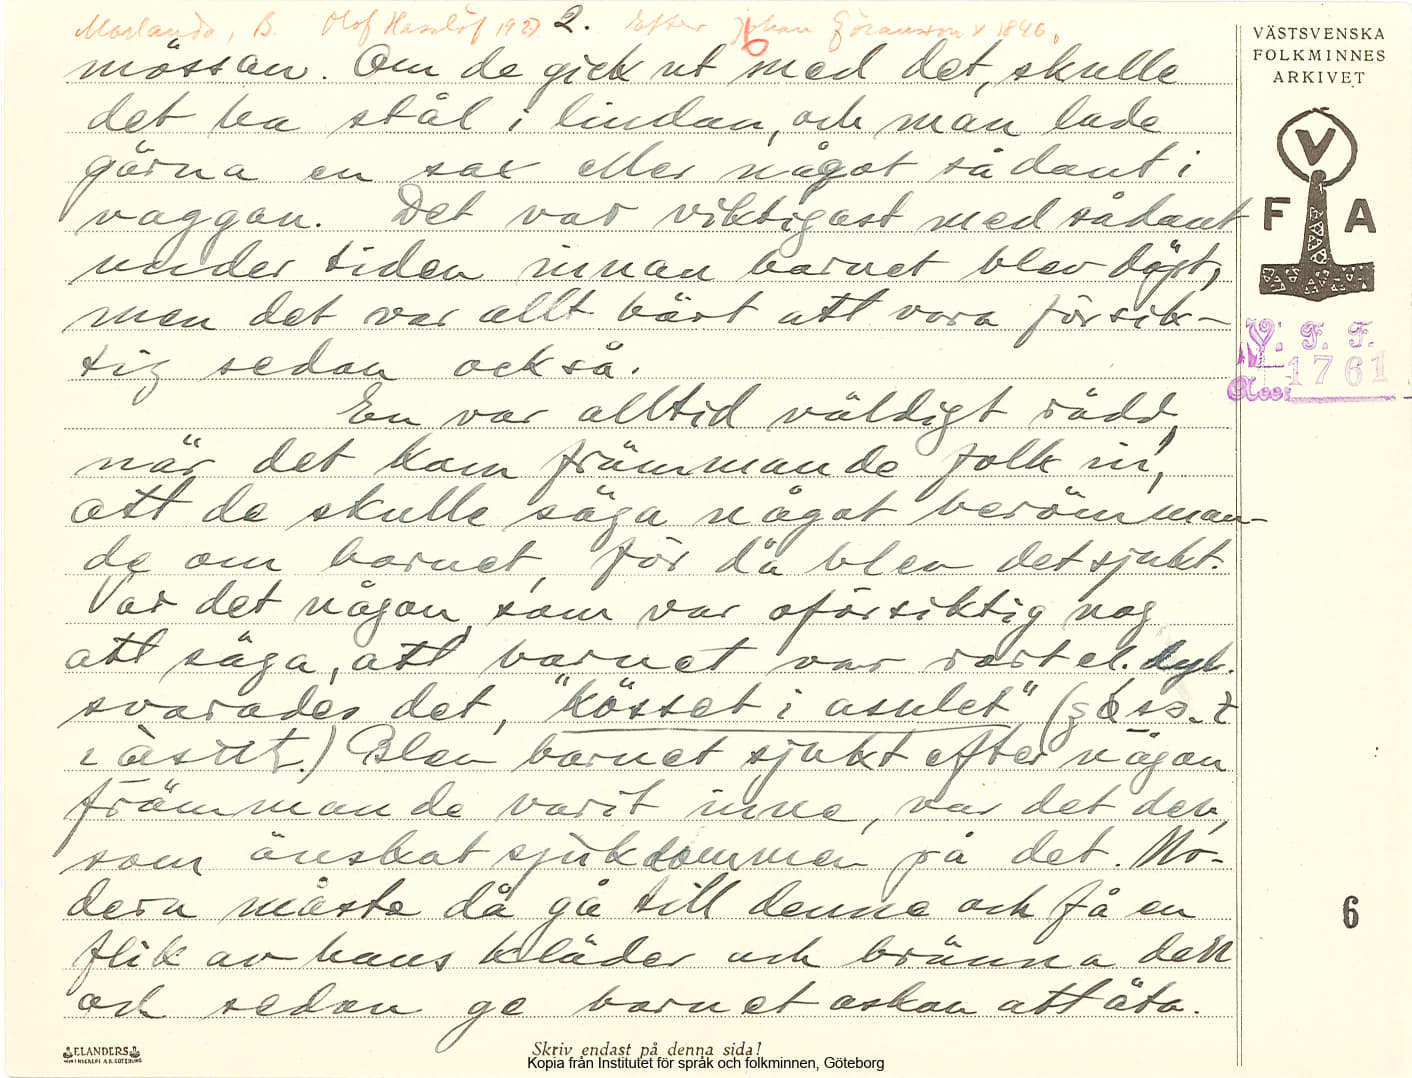 Morlanda, B. Olof Hasslöf 1927 2. Efter Johan Göransson f 1846.
6
mössan. Om de gick ut med det, skulle
det ha stål i lindan, och man lade
gärna en sax eller något sådant i
vaggan. Det var viktigast med sådant
under tiden innan barnet blev döpt,
men det var allt bäst att vara försik-
tig sedan också.
En var alltid väldigt rädd,
när det kom främmande folk in,
att de skulle säga något berömman-
de om barnet, för då blev det sjukt.
Var det någon, som var oförsiktig nog
att säga, att barnet var rart el. dyl.
svarades det, "kösset i asulet" (
) Blev barnet sjukt efter någon
främmande varit inne, var det den,
som önskat sjukdommen på det. Mo-
dern måste då gå till denne och få en
flik av hans kläder och bränna den
och sedan ge barnet askan att äta.
VÄSTSVENSKA
FOLKMINNES
ARKIVET
V
F A
V. F. F.
Acc: 1761
6
ELANDERS
Skriv endast på denna sida!
Kopia från Institutet för språk och folkminnen, Göteborg